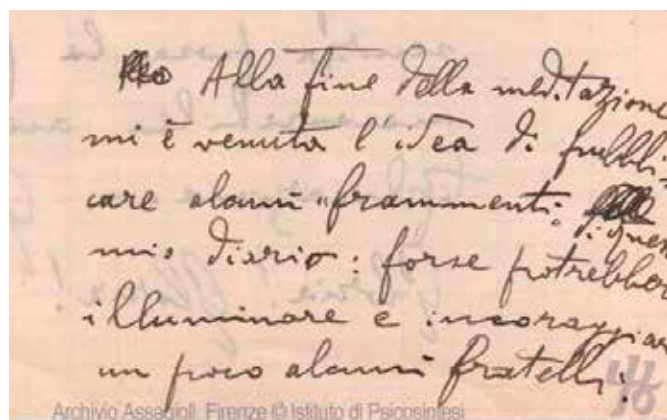 Alla fine della meditazione
mi è venuta l'idea di pubbli-
care alcuni "frammenti" di ques
mio diario: forse potrebbero
illuminare e incoraggiar
un poco alcuni fratelli!
Archivio Assagioli Firenze © Istituto di Psicosintesi